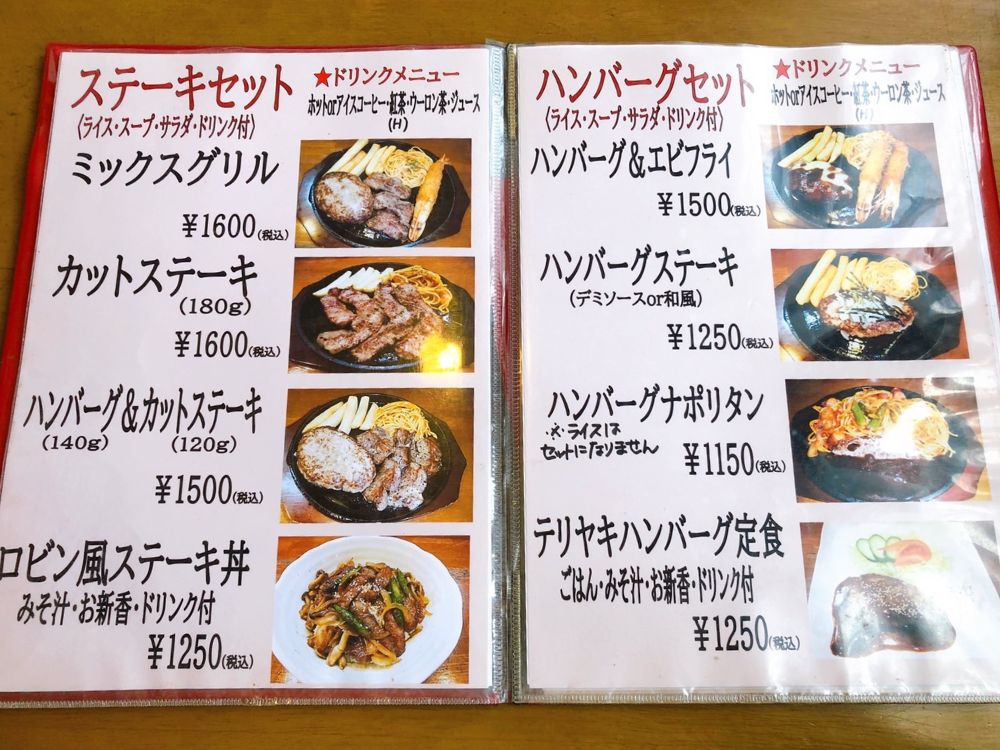 ステーキセット
〈ライス・スープ・サラダ・ドリンク付〉
★ドリンクメニュー
ホットorアイスコーヒー・紅茶・ウーロン茶・ジュース
(H)
ミックスグリル
¥1600(税込)
カットステーキ
(180g)
¥1600(税込)
ハンバーグ&カットステーキ
(140g) (120g)
¥1500(税込)
ロビン風ステーキ丼
みそ汁・お新香・ドリンク付
¥1250(税込)
ハンバーグセット
〈ライス・スープ・サラダ・ドリンク付〉
★ドリンクメニュー
ホットorアイスコーヒー・紅茶・ウーロン茶・ジュース
(H)
ハンバーグ&エビフライ
¥1500(税込)
ハンバーグステーキ
(デミソースor和風)
¥1250(税込)
ハンバーグナポリタン
※ライスは
セットになりません
¥1150(税込)
テリヤキハンバーグ定食
ごはん・みそ汁・お新香・ドリンク付
¥1250(税込)